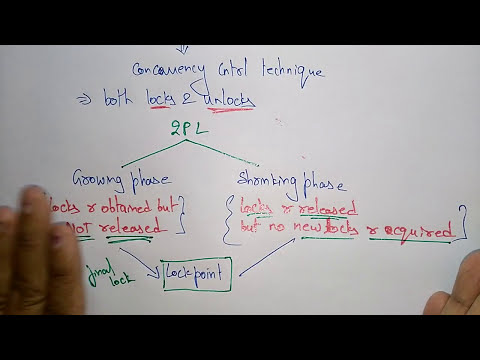 Concurrency Cntrl technique
⇒ both locks & unlocks
2PL
Growing phase
Shrinking phase
locks r obtained but
NOT released
locks r released
but no new locks r acquired
final lock
Lock point